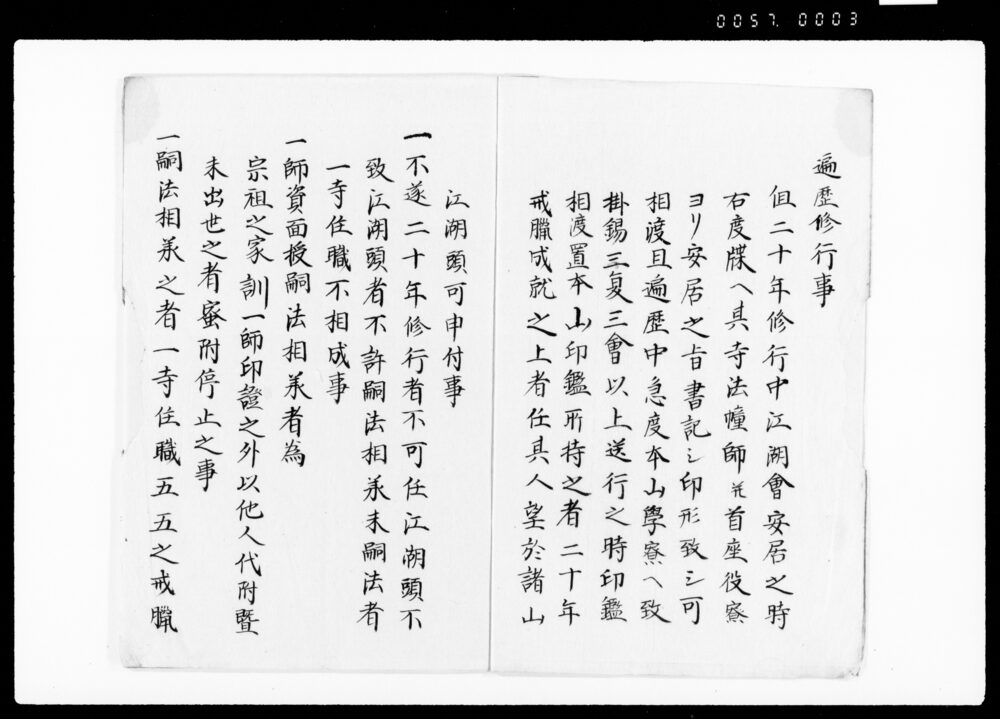 0057. 0003
遍歴修行事
但二十年修行中江湖會安居之時
右度牒ヘ其寺法幢師並首座役寮
ヨリ安居之旨書記シ印形致シ可
相渡且遍歴中急度本山學寮ヘ致
掛錫三夏三會以上送行之時印鑑
相渡置本山印鑑所持之者二十年
戒臘成就之上者任其人望於諸山
江湖頭可申付事
一不遂二十年修行者不可任江湖頭不
致江湖頭者不許嗣法相承未嗣法者
一寺住職不相成事
一師資面授嗣法相承者為
宗祖之家訓一師印證之外以他人代附曁
未出世之者蜜附停止之事
一嗣法相承之者一寺住職五五之戒臘